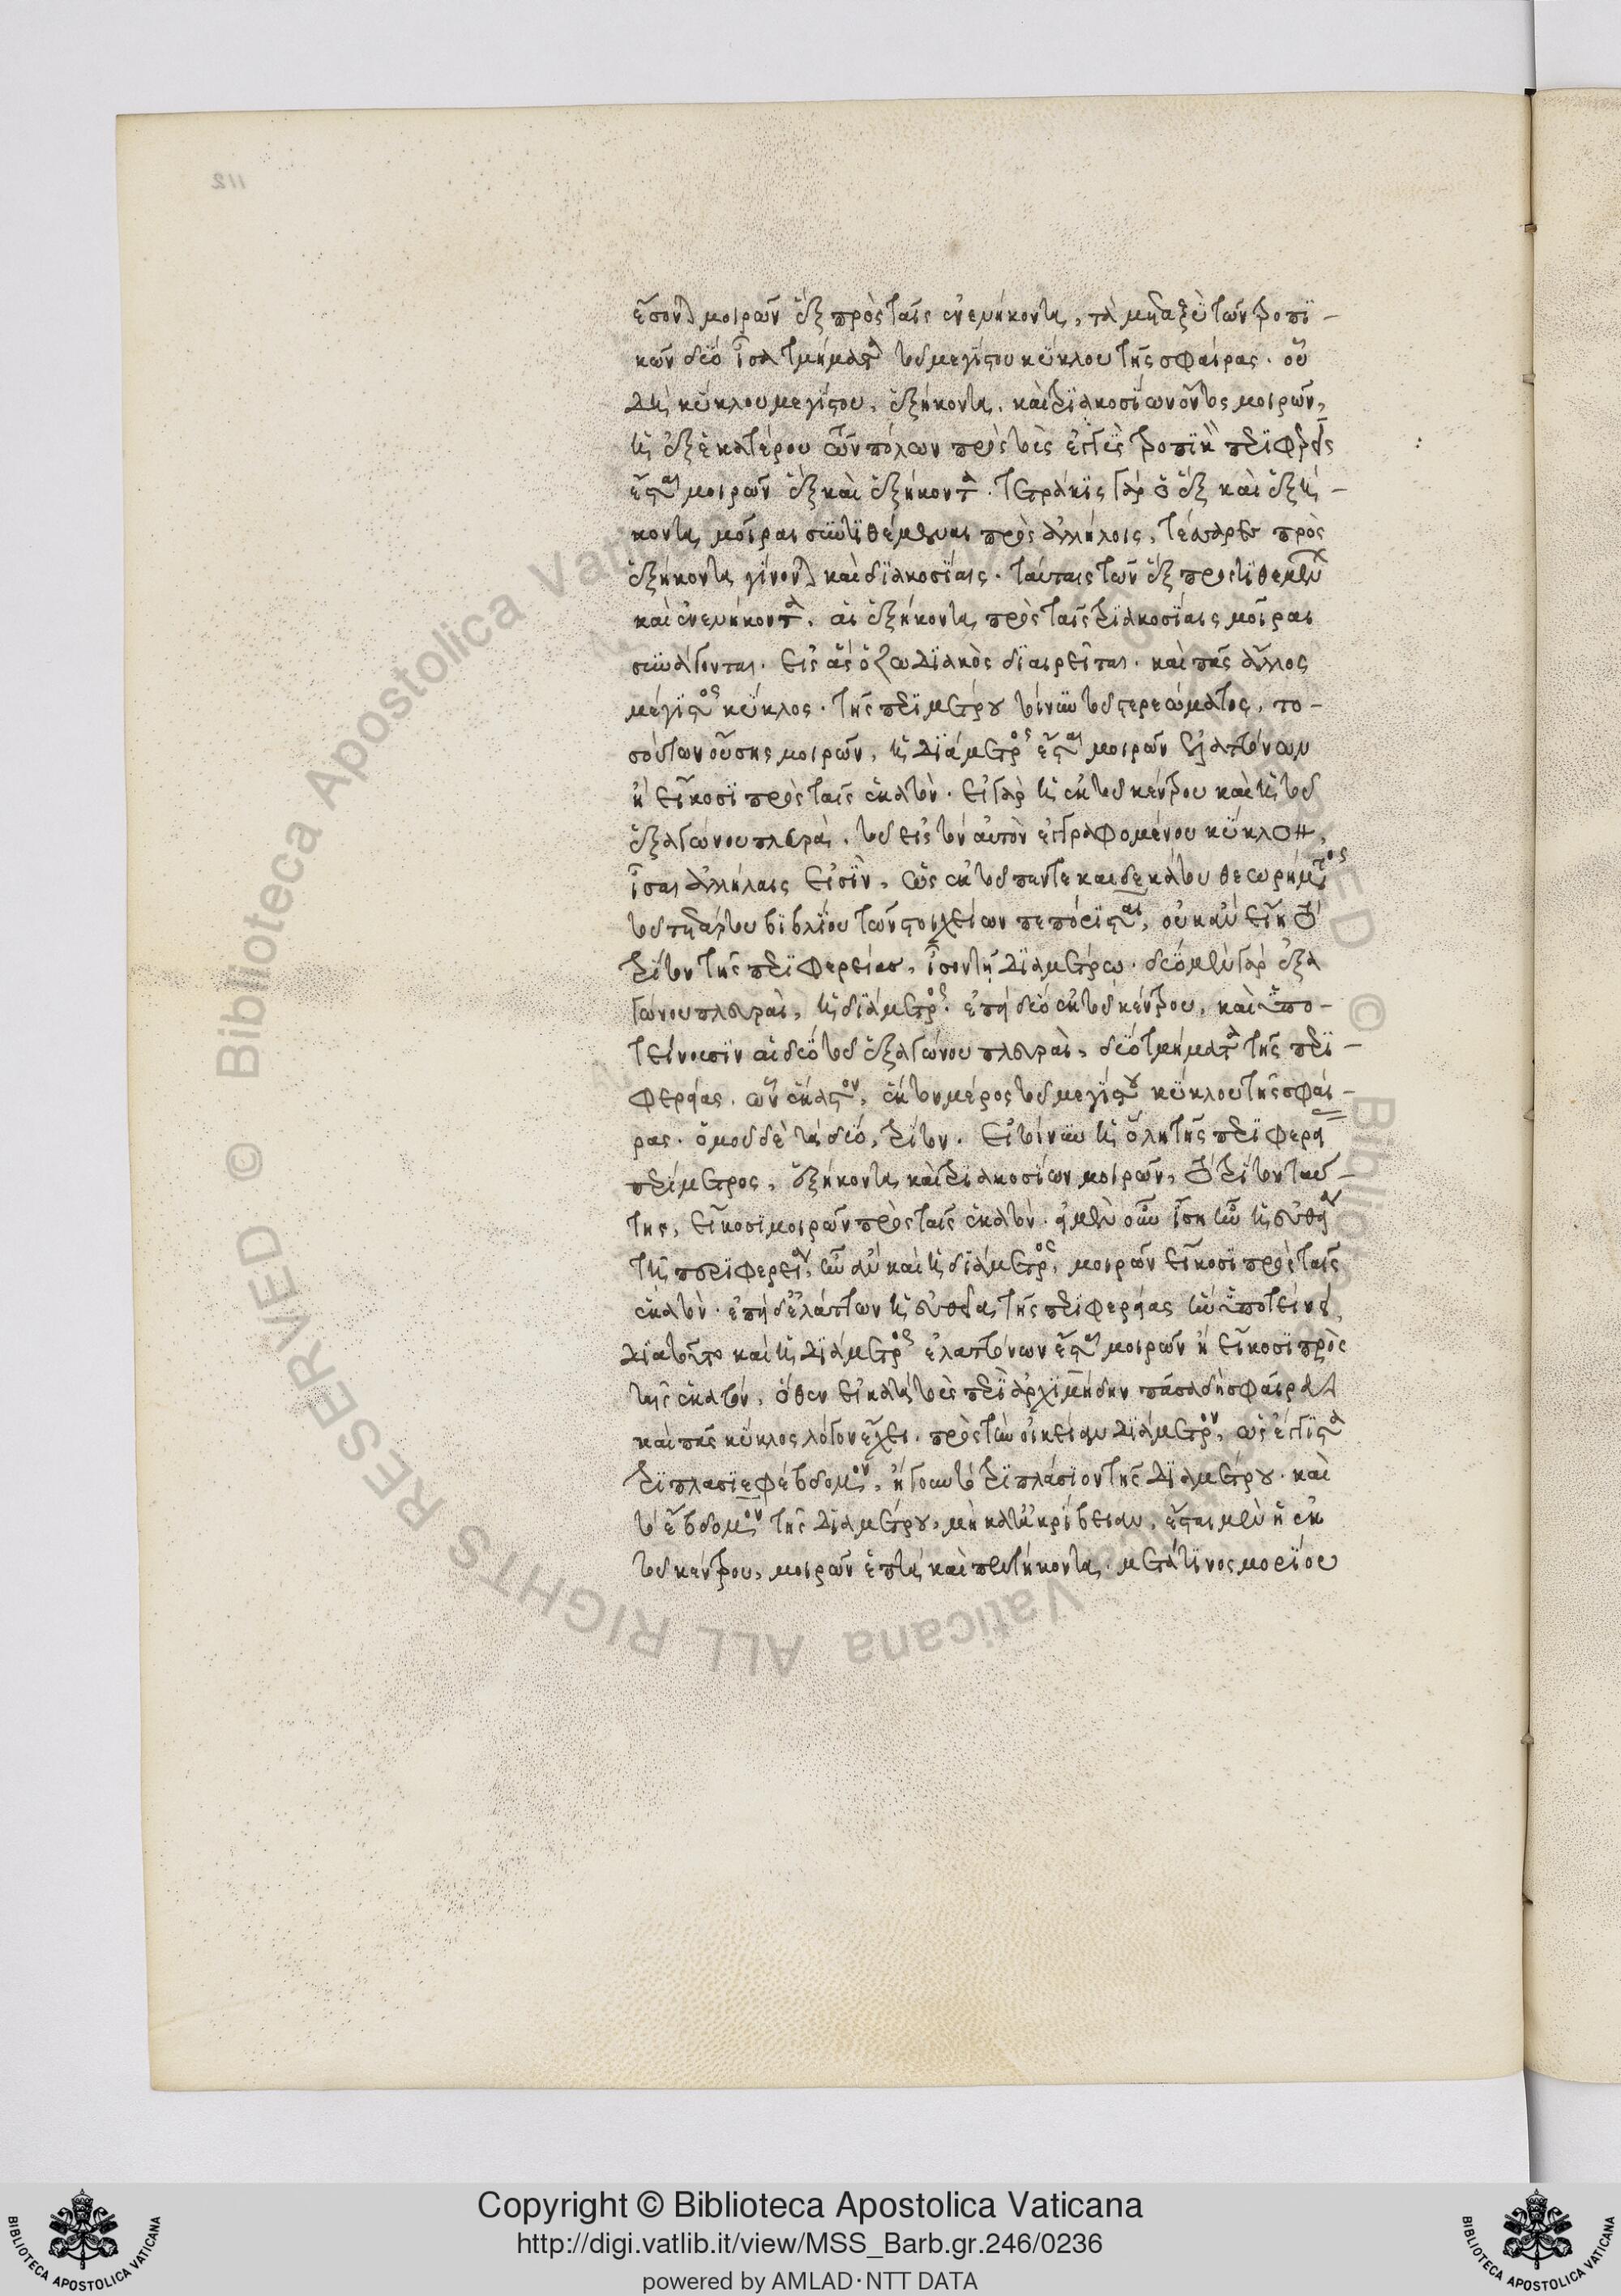 ἔσονται μοιρῶν ἓξ πρὸς ταῖς ἐνενήκοντα, τὰ μεταξὺ τῶν τροπι-
κῶν δύο ἴσα τμήματα τοῦ μεγίστου κύκλου τῆς σφαίρας. οὗ
δὴ κύκλου μεγίστου, ἑξήκοντα, καὶ τριακοσίων ὄντος μοιρῶν,
ἡ ἐξ ἑκατέρου τῶν πόλων πρὸς τὸ τροπικὴ περιφέρεια
ἔσται μοιρῶν ἓξ καὶ ἑξήκοντα. τετράκις γὰρ ἓξ καὶ ἑξή-
κοντα μοῖραι συντιθέμεναι πρὸς ἀλλήλοις, τέσσαρες πρὸς
ἑξήκοντα γίνονται καὶ διακοσίαις. ταύταις τῶν ἓξ προστιθεμένων
καὶ ἐνενήκοντα, αἱ ἑξήκοντα πρὸς ταῖς τριακοσίαις μοῖραι
συνάγονται. εἰς ἃς ὁ ζωδιακὸς διαιρεῖται. καὶ πᾶς ἄλλος
μέγιστος κύκλος. τῆς περιμέτρου τοίνυν τοῦ στερεώματος, το-
σούτων οὔσης μοιρῶν, ἡ διάμετρος ἔσται μοιρῶν ἐλαττόνων
ἢ εἴκοσι πρὸς ταῖς ἑκατόν. εἰ γὰρ ἡ ἐκ τοῦ κέντρου καὶ ἡ τοῦ
ἑξαγώνου πλευρὰ, τοῦ εἰς τὸν αὐτὸν ἐγγραφομένου κύκλον,
ἴσαι ἀλλήλαις εἰσὶν, ὡς ἐκ τοῦ πεντεκαιδεκάτου θεωρήματος
τοῦ τετάρτου βιβλίου τῶν στοιχείων πεπόρισται, οὐκ ἂν εἴη τὸ
τρίτον τῆς περιφερείας, ἴσον τῇ διαμέτρῳ. δύο μὲν γὰρ ἑξα
γώνου πλευραὶ, ἡ διάμετρος. ἐπεὶ δύο ἐκ τοῦ κέντρου, καὶ ὑπο-
τείνουσιν αἱ δύο τοῦ ἑξαγώνου πλευραὶ, δύο τμήματα τῆς περι-
φερείας. ὧν ἕκαστον, ἕκτον μέρος τοῦ μεγίστου κύκλου τῆς σφαί-
ρας. ὁμοῦ δὲ τὰ δύο, τρίτον. εἰ τοίνυν ἡ ὅλη τῆς περιφερείας
περίμετρος, ἑξήκοντα καὶ τριακοσίων μοιρῶν, τὸ τρίτον ταύ-
της, εἴκοσι μοιρῶν πρὸς ταῖς ἑκατόν. εἰ μὲν οὖν ἴση ἦν ἡ εὐθεῖα
τῇ περιφερείᾳ, ἦν ἂν καὶ ἡ διάμετρος, μοιρῶν εἴκοσι πρὸς ταῖς
ἑκατόν. ἐπεὶ δ' ἐλάττων ἡ εὐθεῖα, τῆς περιφερείας ἣν ὑποτείνει,
διὰ τοῦτο καὶ ἡ διάμετρος ἐλαττόνων ἔσται μοιρῶν ἢ εἴκοσι πρὸς
ταῖς ἑκατόν. ὅθεν εἰ κατὰ τοὺς περὶ ἀρχιμήδην πᾶσα δὴ σφαῖρα
καὶ πᾶς κύκλος λόγον ἔχει. πρὸς τὴν οἰκείαν διάμετρον, ὡς ἔγγιστα
τριπλασιεφέβδομον, ἤγουν τὸ τριπλάσιον τῆς διαμέτρου. καὶ
τὸ ἕβδομον τῆς διαμέτρου, μὴ κατ' ἀκρίβειαν, ἔσται μὲν ἡ ἐκ
τοῦ κέντρου, μοιρῶν ἑπτὰ καὶ πεντήκοντα. μετά τινος μορίου
Copyright © Biblioteca Apostolica Vaticana
http://digi.vatlib.it/view/MSS_Barb.gr.246/0236
powered by AMLAD·NTT DATA